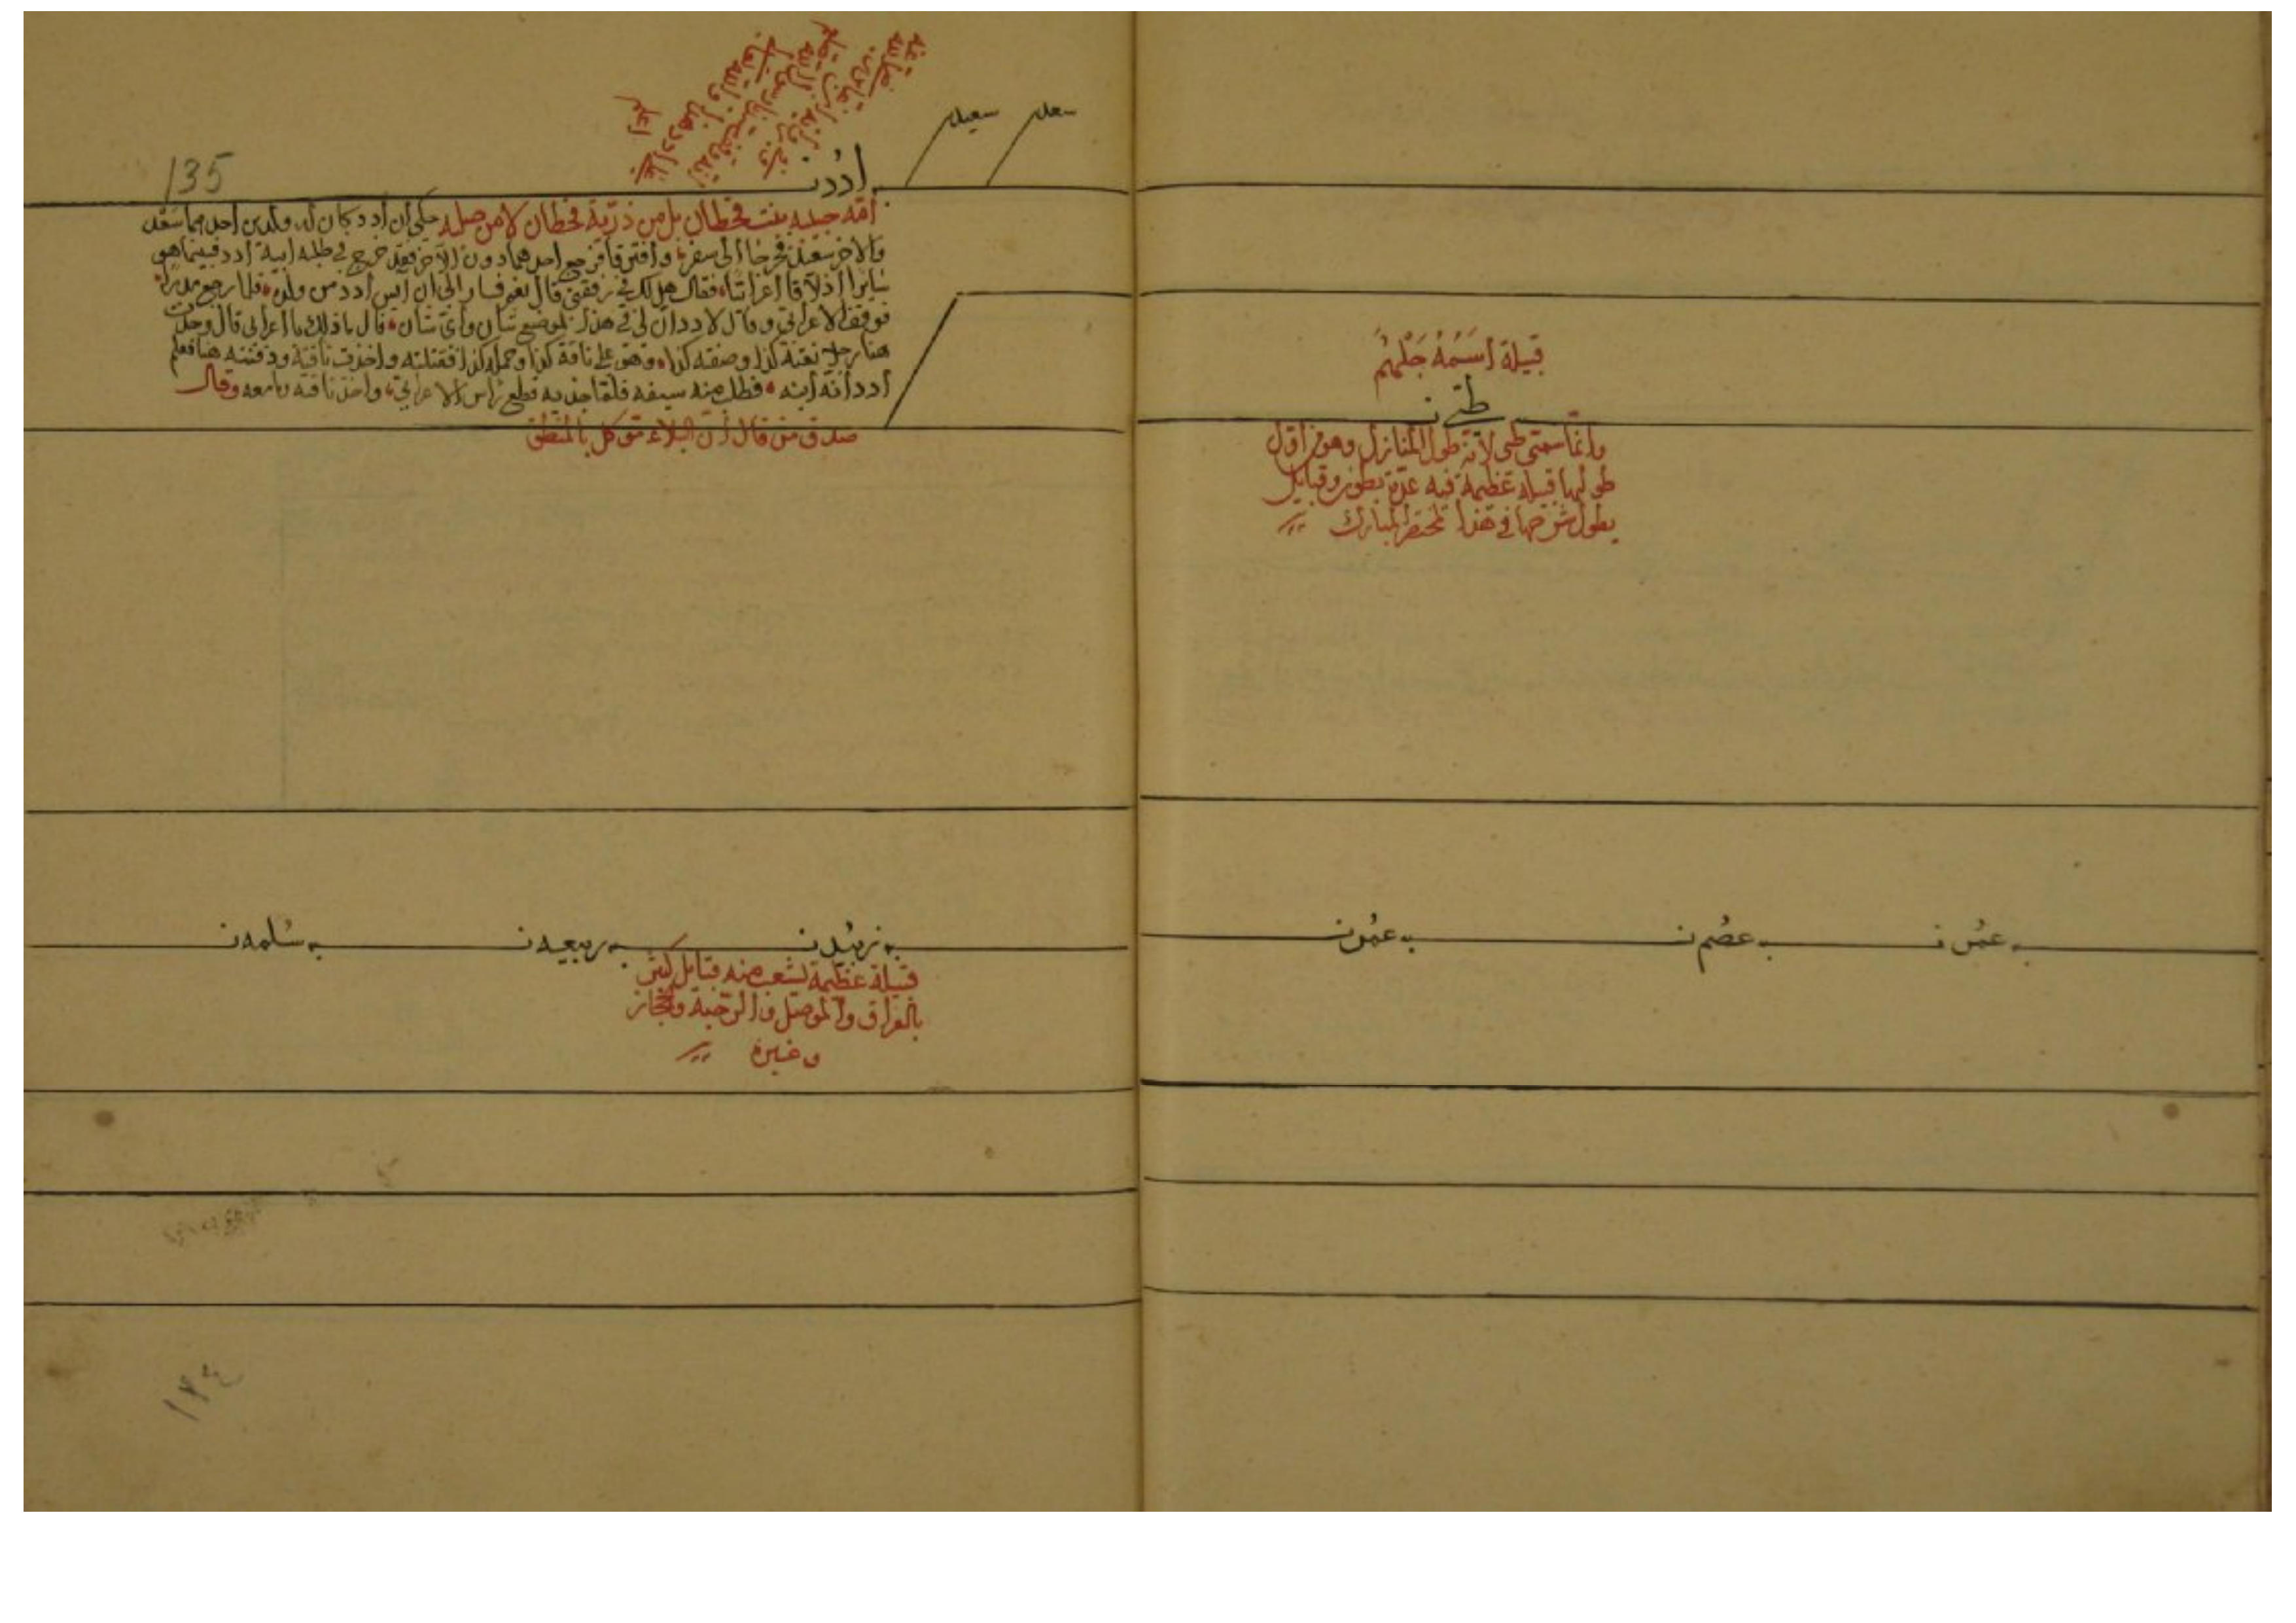 قبيلة اسمه جلهم
طي ن
وانما سمي طي لانه طوا المنازل وهو اول
قبيلة عظيمة فيه عدة بطون وقبايل
يطول شرحها في هذا المختصر المبارك
عمرو ن
عصم ن
عمرو ن
135
سعد
سعيد
ادد ن
امه حبيه بنت قحطان بل من ذرية قحطان لا من صلبه حكي ان ادد كان له ولدين احدهما سعد
والاخر سعيد فخرجا الى سفر وافترقا فرجع احدهما دون الاخر فقد خرج في طلبه ابيه ادد فبينما هو
سايرا اذ لاقا اعرابيا فقال هل لك في رفقتي قال نعم فسار الى ان آيس ادد من ولده فلما رجع
فوقف الاعرابي وقال لادد ان لي في هذا الموضع شان واي شان قال ما ذلك يا اعرابي قال وجدت
هنا رجل نعته كذا وصفته كذا وهو على ناقة كذا وحمله كذا فقتلته واخذت ناقته ودفنته هنا فعلم
ادد انه ابنه فطلب منه سيفه فلما جذبه قطع راس الاعرابي واخذ ناقته معه وقال
صدق من قال ان البلاء موكل بالمنطق
زبيد ن
ربيعه ن
سلمه ن
قبيلة عظيمة تشعب منه قبايل كثير
بالعراق والموصل والرحبة والحجاز
وغيره
١٣٤